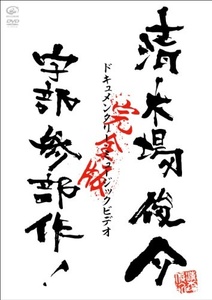 清木場俊介
ドキュメンタリー&ミュージックビデオ
完全版
宇部参部作！
DVD